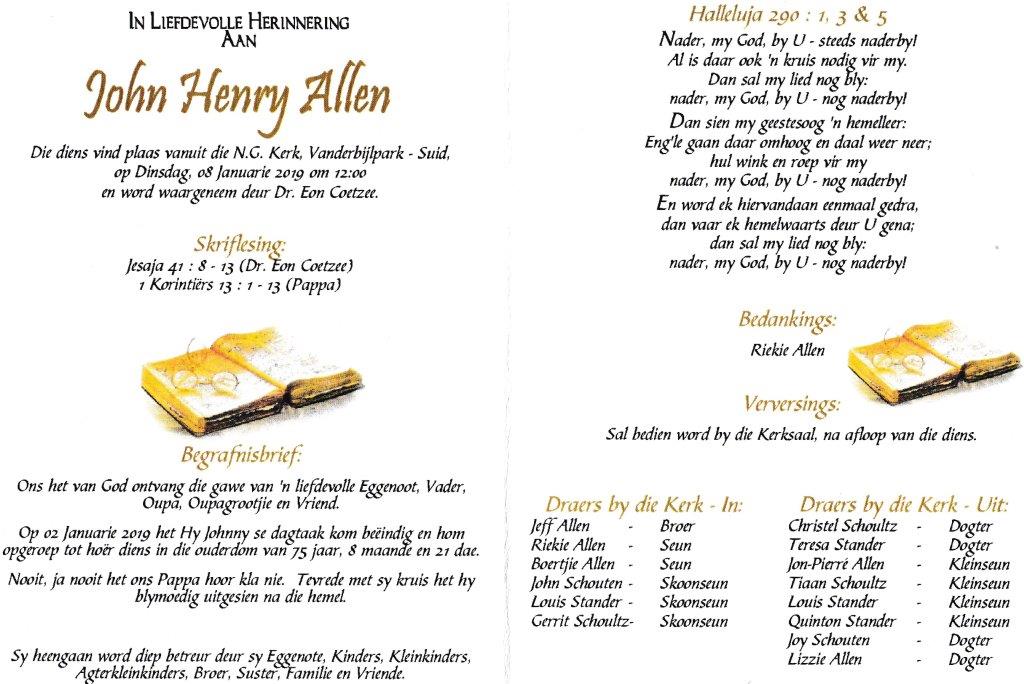 In Liefdevolle Herinnering
Aan
John Henry Allen
Die diens vind plaas vanuit die N.G. Kerk, Vanderbijlpark - Suid,
op Dinsdag, 08 Januarie 2019 om 12:00
en word waargeneem deur Dr. Eon Coetzee.
Skriflesing:
Jesaja 41 : 8 - 13 (Dr. Eon Coetzee)
1 Korintiërs 13 : 1 - 13 (Pappa)
Begrafnisbrief:
Ons het van God ontvang die gawe van 'n liefdevolle Eggenoot, Vader,
Oupa, Oupagrootjie en Vriend.
Op 02 Januarie 2019 het Hy Johnny se dagtaak kom beëindig en hom
opgeroep tot hoër diens in die ouderdom van 75 jaar, 8 maande en 21 dae.
Nooit, ja nooit het ons Pappa hoor kla nie. Tevrede met sy kruis het hy
blymoedig uitgesien na die hemel.
Sy heengaan word diep betreur deur sy Eggenote, Kinders, Kleinkinders,
Agterkleinkinders, Broer, Suster, Familie en Vriende.
Halleluja 290 : 1, 3 & 5
Nader, my God, by U - steeds naderby!
Al is daar ook 'n kruis nodig vir my.
Dan sal my lied nog bly:
nader, my God, by U - nog naderby!
Dan sien my geestesoog 'n hemelleer:
Eng'le gaan daar omhoog en daal weer neer;
hul wink en roep vir my
nader, my God, by U - nog naderby!
En word ek hiervandaan eenmaal gedra,
dan vaar ek hemelwaarts deur U gena;
dan sal my lied nog bly:
nader, my God, by U - nog naderby!
Bedankings:
Riekie Allen
Verversings:
Sal bedien word by die Kerksaal, na afloop van die diens.
Draers by die Kerk - In:
Jeff Allen - Broer
Riekie Allen - Seun
Boertjie Allen - Seun
John Schouten - Skoonseun
Louis Stander - Skoonseun
Gerrit Schoultz- Skoonseun
Draers by die Kerk - Uit:
Christel Schoultz - Dogter
Teresa Stander - Dogter
Jon-Pierré Allen - Kleinseun
Tiaan Schoultz - Kleinseun
Louis Stander - Kleinseun
Quinton Stander - Kleinseun
Joy Schouten - Dogter
Lizzie Allen - Dogter